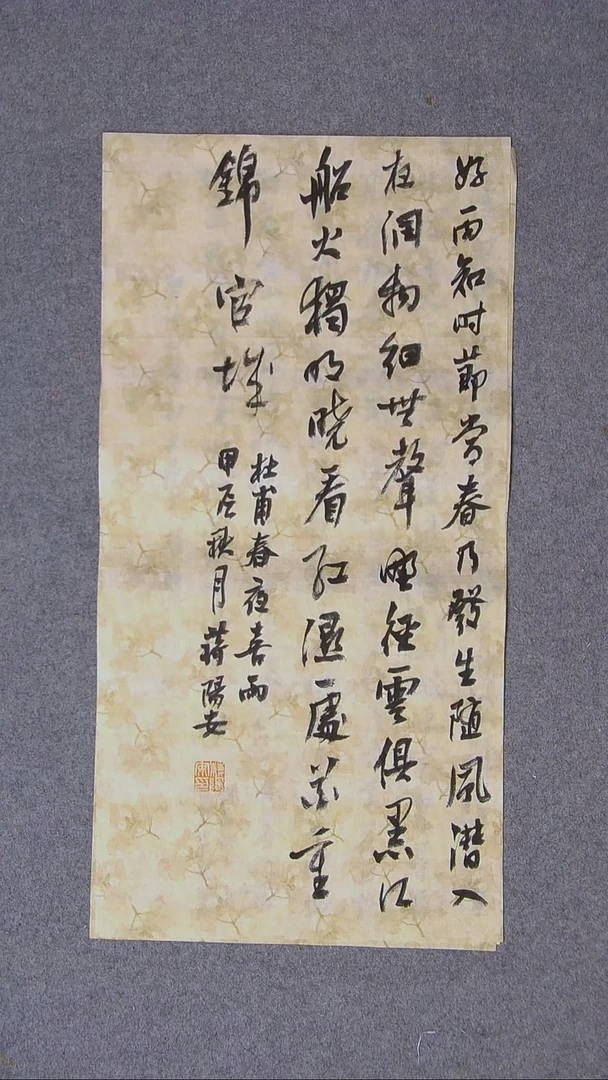 好雨知时節當春乃發生随風潜入
夜润物细無聲野径雲俱黑江
船火獨明晓看红濕處花重
錦官城
杜甫春夜喜雨
甲辰秋月蒋陽安